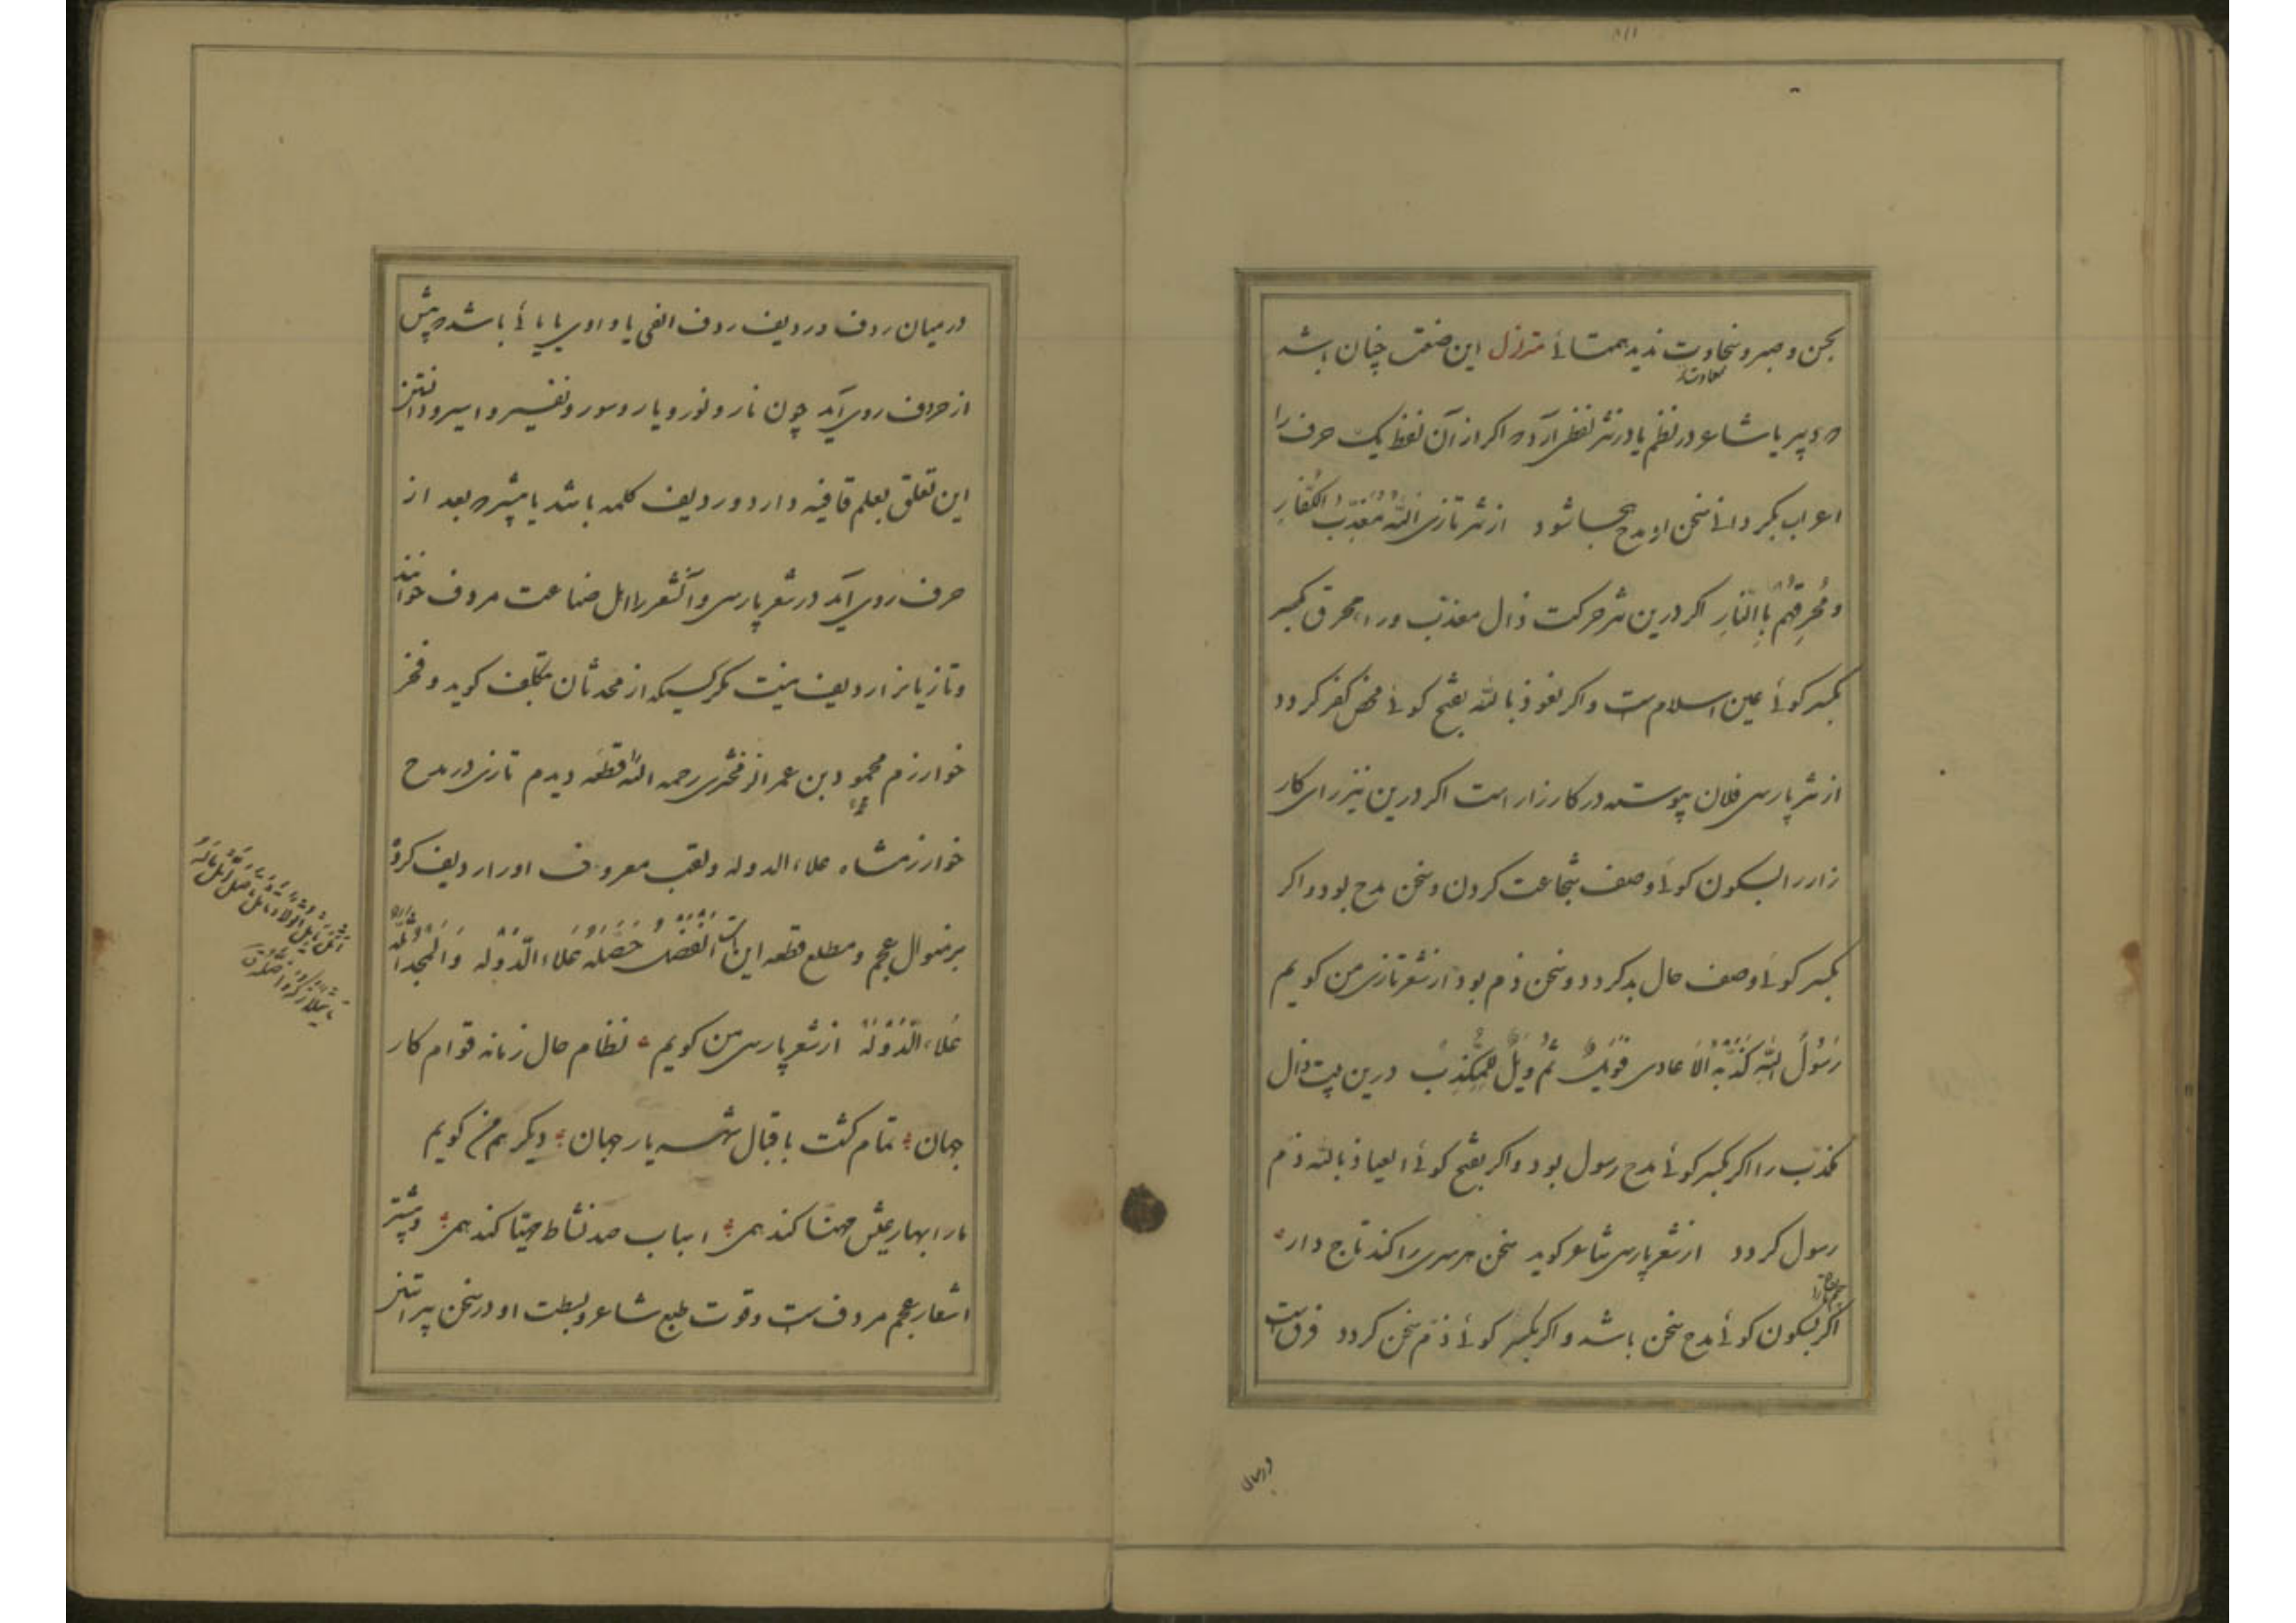 بحسن و صبر و سخاوت ندید همتائ متزلزل این صنعت چنان باشد
که دبیر یا شاعر در نظم یا در نثر لفظی آرد که اکر از آن لفظ یک حرف را
اعراب بکردانے سخن از مدح بهجا شود از نثر تازی اللّٰه مُعَذِّبُ الکُفَّارِ
و مُحرِقُهُم بِاالنّارِ اکر درین نثر حرکت ذال معذب و راء محرق بکسر
بکسر کوئے عین اسلام ست و اکر نعوذ باللّٰه بفتح کوئے محض کفر کردد
از نثر پارسی فلان پیوسته در کارزار است اکر درین نیز رای کار
زار را بسکون کوئے وصف شجاعت کردن و سخن مدح بود و اکر
بکسر کوئے وصف حال بد کردد و سخن ذم بود از شعر تازی من کویم
رَسُولُ اللّٰهِ کَذَّبَهُ الاَعادی فَوَیلٌ ثُمَّ وَیلٌ لِلمُکَذِّب درین بیت ذال
مکذب را اکر بکسر کوئے مدح رسول بود و اکر بفتح کوئے العیاذ باللّٰه ذم
رسول کردد از شعر پارسی شاعر کوید سخن هر سری را کند تاج دار
اکر بسکون کوئے مدح سخن باشد و اکر بکسر کوئے ذم سخن کردد فرق ست
درمیان
درمیان ردف و ردیف ردف الفی یا واوی یا یائے باشد که پیش
از حرف روی آید چون نار و نور و یار و سور و نفیر و اسیر و دانستن
این تعلق بعلم قافیه دارد و ردیف کلمه باشد یا بیشتر که بعد از
حرف روی آید در شعر پارسی و آن شعر را اهل صناعت مردف خوانند
و تازیانرا ردیف نیست مکر کسیکه از محدثان بتکلف کوید و فخر
خوارزم محمود بن عمر الزمخشری رحمه اللّٰه قطعه دیدم تازی در مدح
خوارزمشاه علاء الدوله و لقب معروف او را ردیف کرده
بر منوال عجم و مطلع قطعه این است اَلفَضلُ حَصَّلَهُ عَلاءُ الدَّولَه وَالمَجدُ اَثَّلَهُ
عَلاءُ الدَّولَة از شعر پارسی من کویم نظام حال زمانه قوام کار
جهان تمام کشت باقبال شهریار جهان دیکر هم من کویم
ما را بهار عیش مهنا کند همی اسباب صد نشاط مهیا کند همی و بیشتر
اشعار عجم مردف ست و قوت طبع شاعر و بسطت او در سخن پیراستن